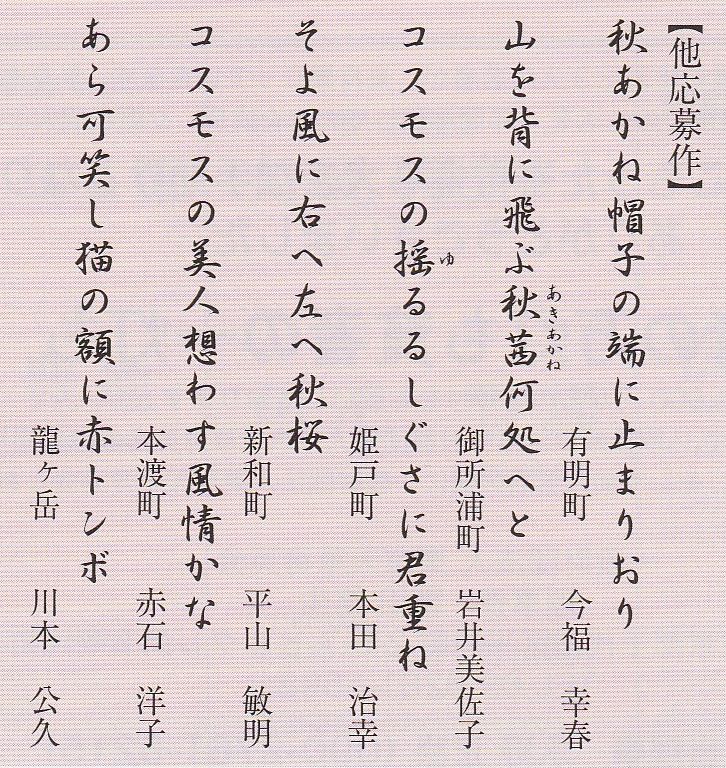 【他応募作】
秋あかね帽子の端に止まりおり
有明町 今福 幸春
山を背に飛ぶ秋茜何処へと
あきあかね
御所浦町 岩井美佐子
コスモスの揺るるしぐさに君重ね
ゆ
姫戸町 本田 治幸
そよ風に右へ左へ秋桜
新和町 平山 敏明
コスモスの美人想わす風情かな
本渡町 赤石 洋子
あら可笑し猫の額に赤トンボ
龍ヶ岳 川本 公久